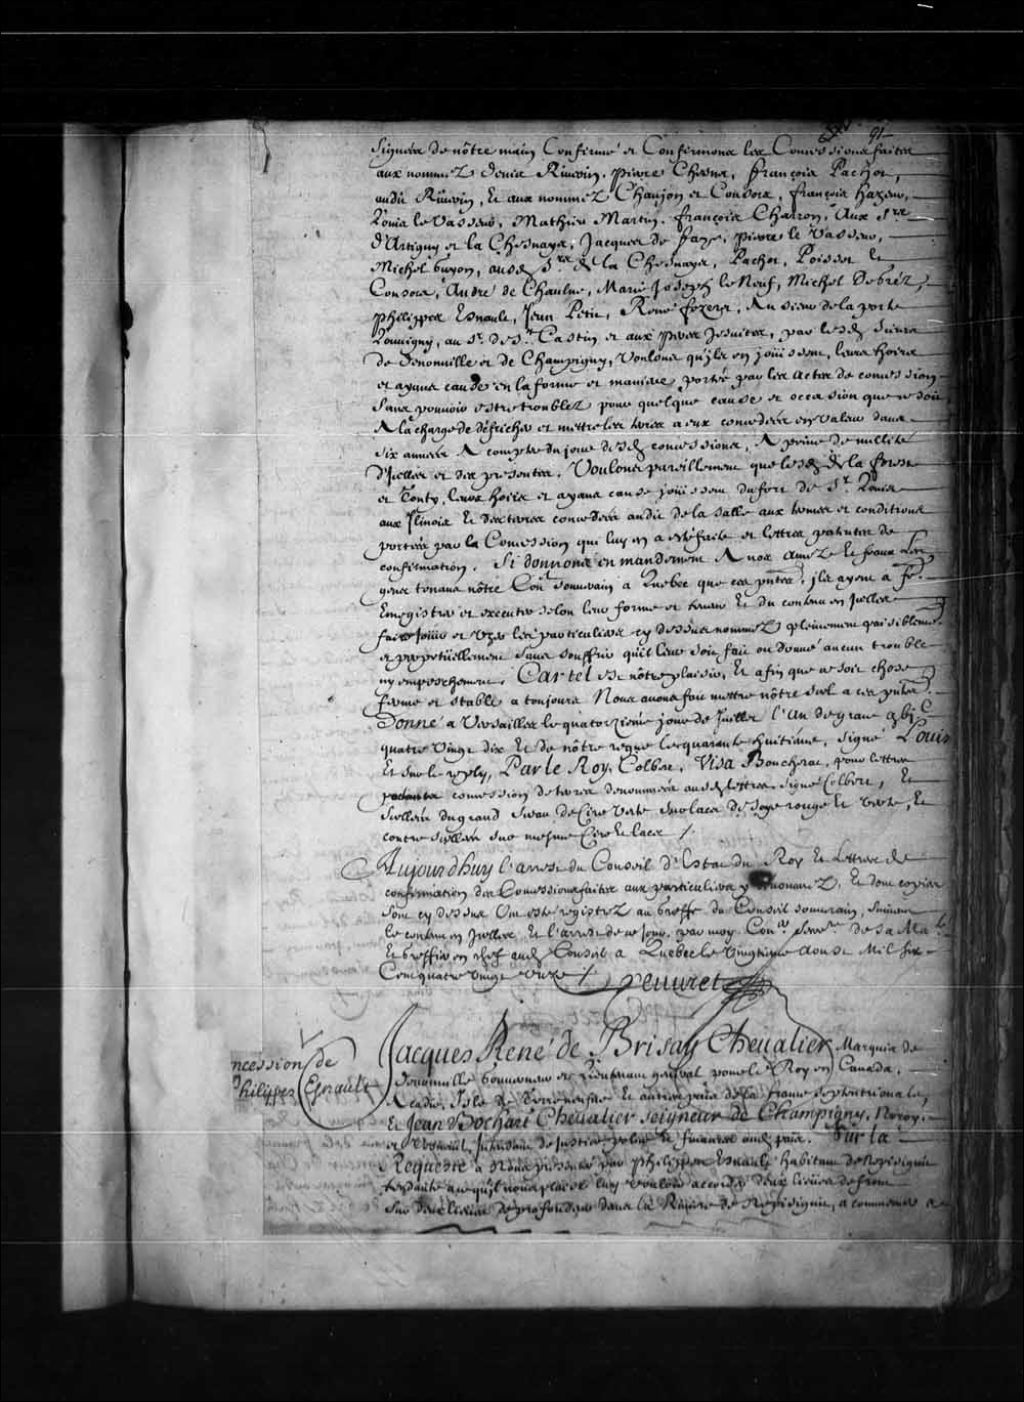 91
Signées de nôtre main Confirmé et Confirmons les Concessions faites
aux nommez Denis Riverin, pierre Chesne, françois Pachot,
audit Riverin, Et aux nommez Chanjon et Consors, françois hazeur,
Louis le Vasseur, Mathieu Martin, françois Charron, Aux Srs
d'Artigny et la Chesnaye, Jacques de faye, pierre le Vasseur,
Michel Guyon, ausd. Srs de la Chesnaye, Pachot, Poisset et
Consors, André de Chaulne, Marie Joseph le Neuf, Michel Degréz,
philippes Esnault, Jean Petit, René fezeret, Au sieur de la porte
Louvigny, au Sr. de St. Castin et aux peres Jesuites, par lesd. Sieurs
de Denonville et de Champigny, Voulons qu'ils en joüissent, leurs hoirs
et ayans cause en la forme et maniere portée par les actes de concession
Sans pouvoir estre troublez pour quelque cause et occasion que ce soit
A la charge de défricher et mettre les terres a eux concedées en Valeur dans
six années A compter du jour desd. concessions, A peine de nullité
d'Icelles et des presentes. Voulons pareillement que lesd. de la forest
et Tonty, leurs hoirs et ayans cause joüissent du fort de St. Louis
aux Ilinois Et des terres concedées audit de la Salle aux termes et conditions
portées par la Concession qui luy en a esté faite et lettres patentes de
confirmation. Si donnons en mandement A nos amez Et feaux Les
gens tenans nôtre Con. souverain a Quebec que ces pntes. ils ayent a fre.
Enregistrer et executer selon leur forme et teneur Et du contenu en Icelles
faire Joüir et Uzer les particuliers cy dessus nommez pleinement paisiblemt.
et perpetüellement sans souffrir qu'il leur soit fait ou donné aucun trouble
ny empeschement. Car tel est nôtre plaisir, Et afin que ce soit chose
ferme et stable a toujours Nous avons fait mettre nôtre scel a ces pntes.
Donné a Versailles le quatorzieme jour de Juillet l'An de grace gbjc
quatre Vingt dix Et de nôtre regne le quarante huitiéme. Signé Louis
Et sur le reply, Par le Roy, Colbert, Visa Boucherat, pour lettres
patentes concession de terres denommées ausd. lettres signé Colbert, Et
scellées du grand Sceau de Cire Verte sur lacs de soye rouge et Verte, Et
contre scellées sur mesme Cire Et lacs /
Aujourd'huy l'arrest du Conseil d'Estat du Roy Et Lettres de
confirmation des Concessions faites aux particuliers y denommez, Et dont copies
sont cy dessus Ont esté registrez au Greffe du Conseil souverain, suivant
le contenu en Icelles, Et l'arrest de ce jour, par moy Coner. Secre. de sa Maté.
Et Greffier en chef aud. Conseil a Quebec le Vingtieme Aoust Mil six
Cent quatre Vingt Onze /
Peuvret
ncession de
Philippes Esnault
Jacques René de Brisay Chevalier Marquis de
Denonville Gouverneur et Lieutenant general pour le Roy en Canada,
Acadie, Isle de Terre neufve Et autres païs de la france septentrionale,
Et Jean Bochart Chevalier Seigneur de Champigny, Noroy,
et Verneüil, Intendant de Justice police Et finances aud. païs. Sur la
Requeste a Nous presentée par philippes Esnault habitant de Nepisiguit
tendante a ce qu'il nous plaise luy Vouloir accorder deux lieües de front
sur deux lieües de profondeur dans la Riviere de Nepisiguit, a commencer a